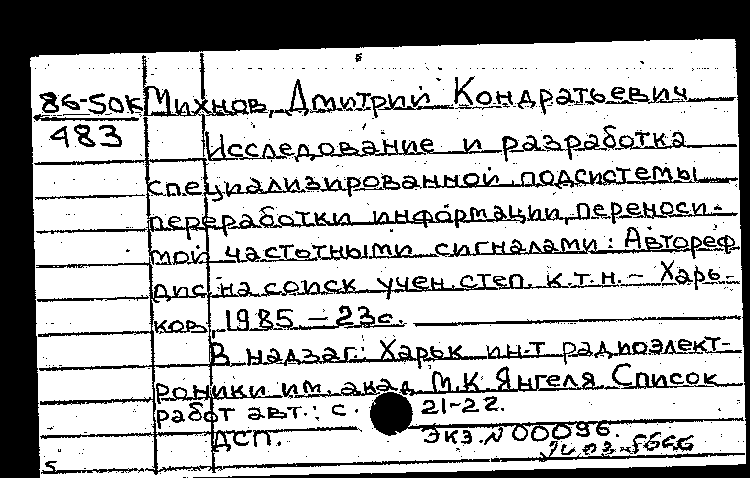 86-50к Михнов, Дмитрий Кондратьевич
483
Исследование и разработка
специализированной подсистемы
переработки информации, переноси-
мой частотными сигналами: Автореф
дис. на соиск. учен. степ. к.т.н. - Харь-
ков, 1985. - 23с.
В надзаг.: Харьк. ин-т радиоэлект-
роники им. акад. М.К. Янгеля. Список
работ авт.: с. 21-22.
ДСП. Экз. N 00096.
5